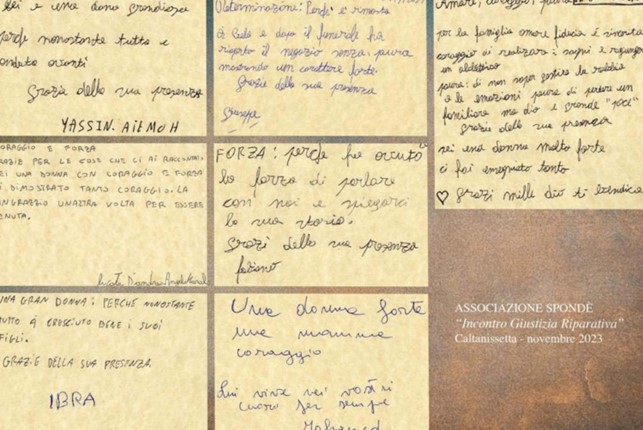 lei è una dona grandiosa
perché nonostante tutto è
andata avanti
Grazie della sua presenza
YASSIN. AitMOH
Determinazione: Perché è rimasta
in Sicilia e dopo il funerale ha
riaperto il negozio senza paura
mostrando un carattere forte.
Grazie della sua presenza
Giuseppe
Amore, coraggio, paura
per la famiglia amore fiducia è rinorità
coraggio di realizare i sogni e raggiunge
un obbiettivo
paura: di non saper gestire la rabbia
o le emozioni paura di perdere un
familiare ma dio è grande "pace"
grazie dela sua presenza
sei una donna molto forte
ci hai emegnieto tanto
♡ Grazi mille dio ti benedica
CORAGGIO E FORZA
GRAZIE PER LE COSE CHE CI AI RACCONTATO
SEI UNA DONNA CON CORAGGIO E FORZA
AI DIMOSTRATO TANTO CORAGGIO. LA
RINGRAZIO UNALTRA VOLTA PER ESSERE
VENUTA.
FORZA: perche fie avuto
la forza di parlare
con noi e spiegarci
la sua storia.
Grazi della sua presenza
fabiano
UNA GRAN DONNA: PERCHÉ NONOSTANTE
TUTTO A CRESCIUTO BENE I SUOI
FIGLI.
GRAZIE DELLA SUA PRESENZA
IBRA
Una donna forte
una mamma
coraggio
Lui vive nei vostri
cuori per sempre
Mohamed
ASSOCIAZIONE SPONDE
"Incontro Giustizia Riparativa"
Caltanissetta - novembre 2023